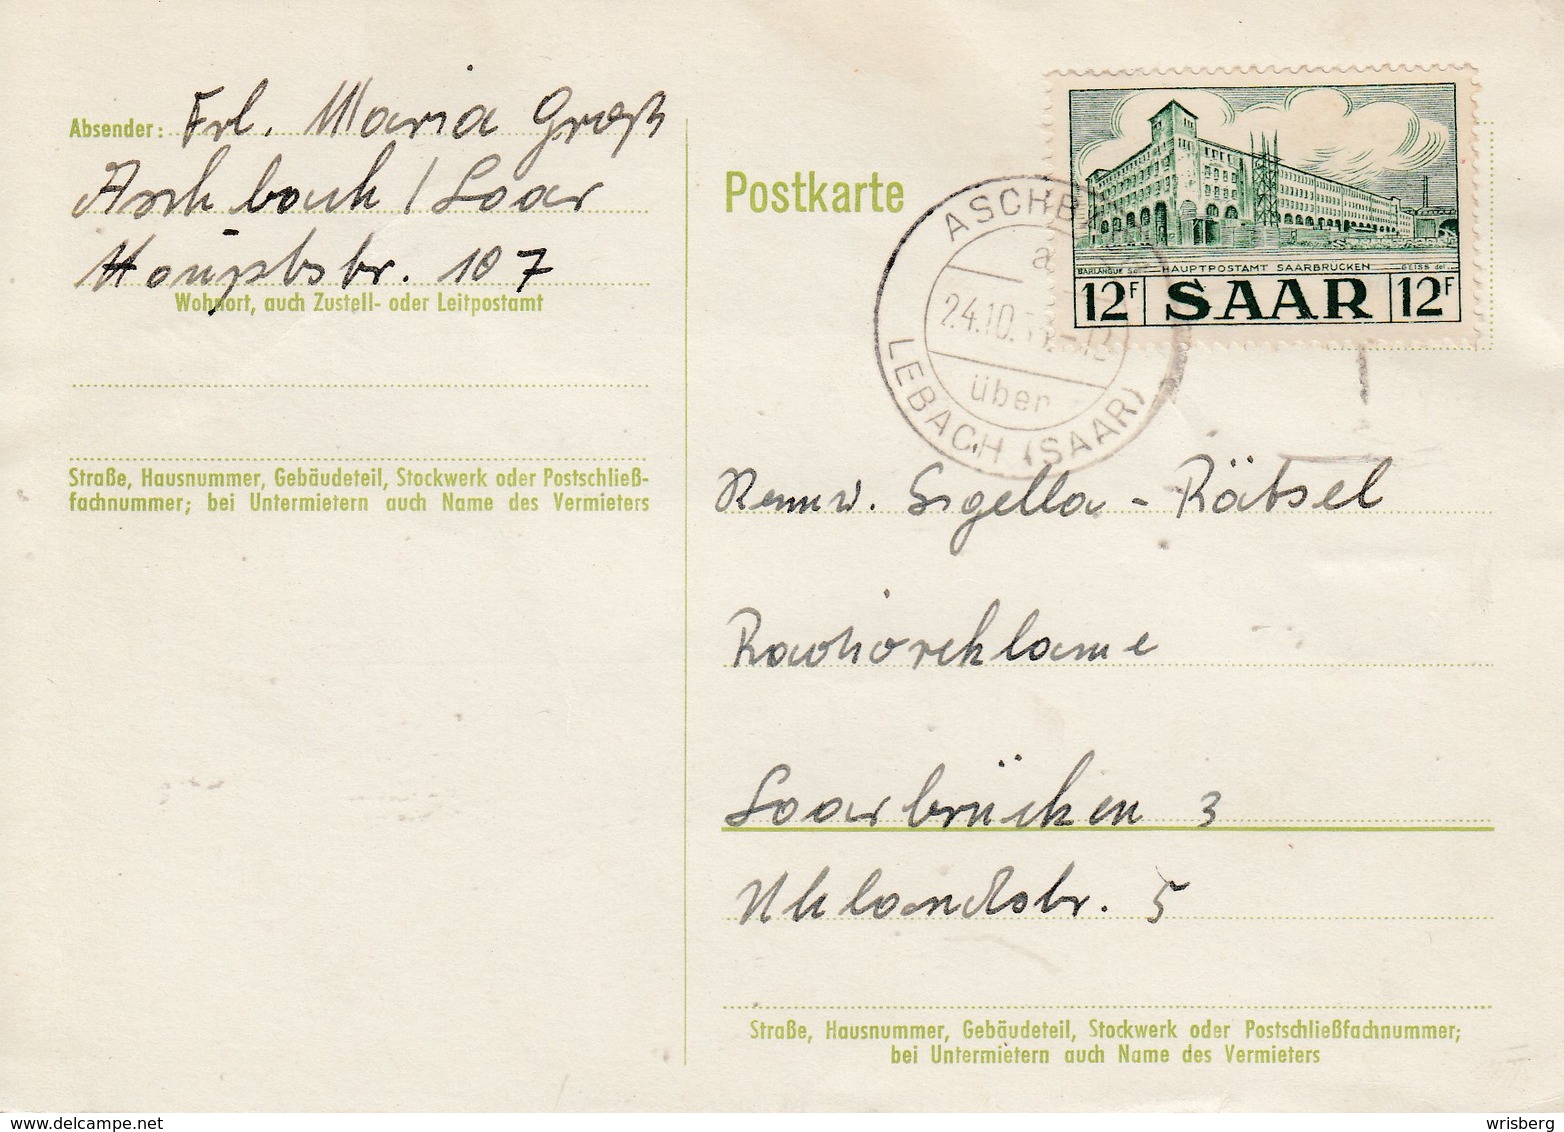 Absender: Frl. Maria Groß
Aschbach / Saar
Hauptstr. 107
Wohnort, auch Zustell- oder Leitpostamt
Straße, Hausnummer, Gebäudeteil, Stockwerk oder Postschließ-
fachnummer; bei Untermietern auch Name des Vermieters
Postkarte
HAUPTPOSTAMT SAARBRÜCKEN
12F SAAR 12F
a
24.10.
über
LEBACH (SAAR)
Sigella - Rätsel
Radioreklame
Saarbrücken 3
Uhlandstr. 5
Straße, Hausnummer, Gebäudeteil, Stockwerk oder Postschließfachnummer;
bei Untermietern auch Name des Vermieters
wrisberg